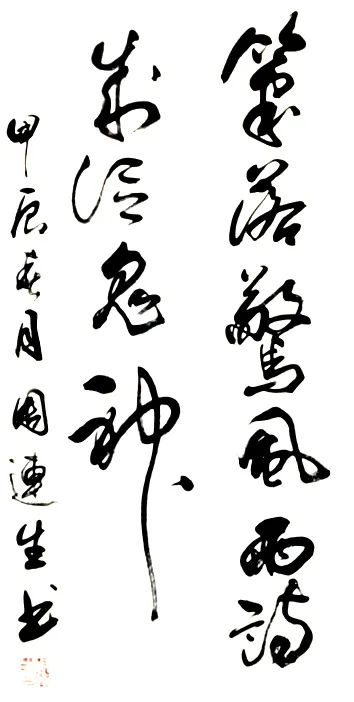 筆落驚風雨詩
成泣鬼神
甲辰春月周連生书